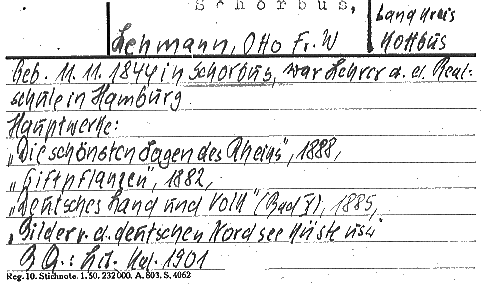 Schorbus,
Landkreis
Lehmann, Otto Fr. W Kottbus
Geb. 11. 11. 1844 in Schorbus, war Lehrer a. d. Real-
schule in Hamburg
Hauptwerke:
„Die schönsten Sagen des Rheins", 1888,
„Giftpflanzen", 1882,
„Deutsches Land und Volk" (Bad I), 1885,
„Bilder v. d. deutschen Nordseeküste usw
Lit. Kal. 1901
Reg. 10. Stichnote. 1. 50. 232000. A. 803. S. 4062